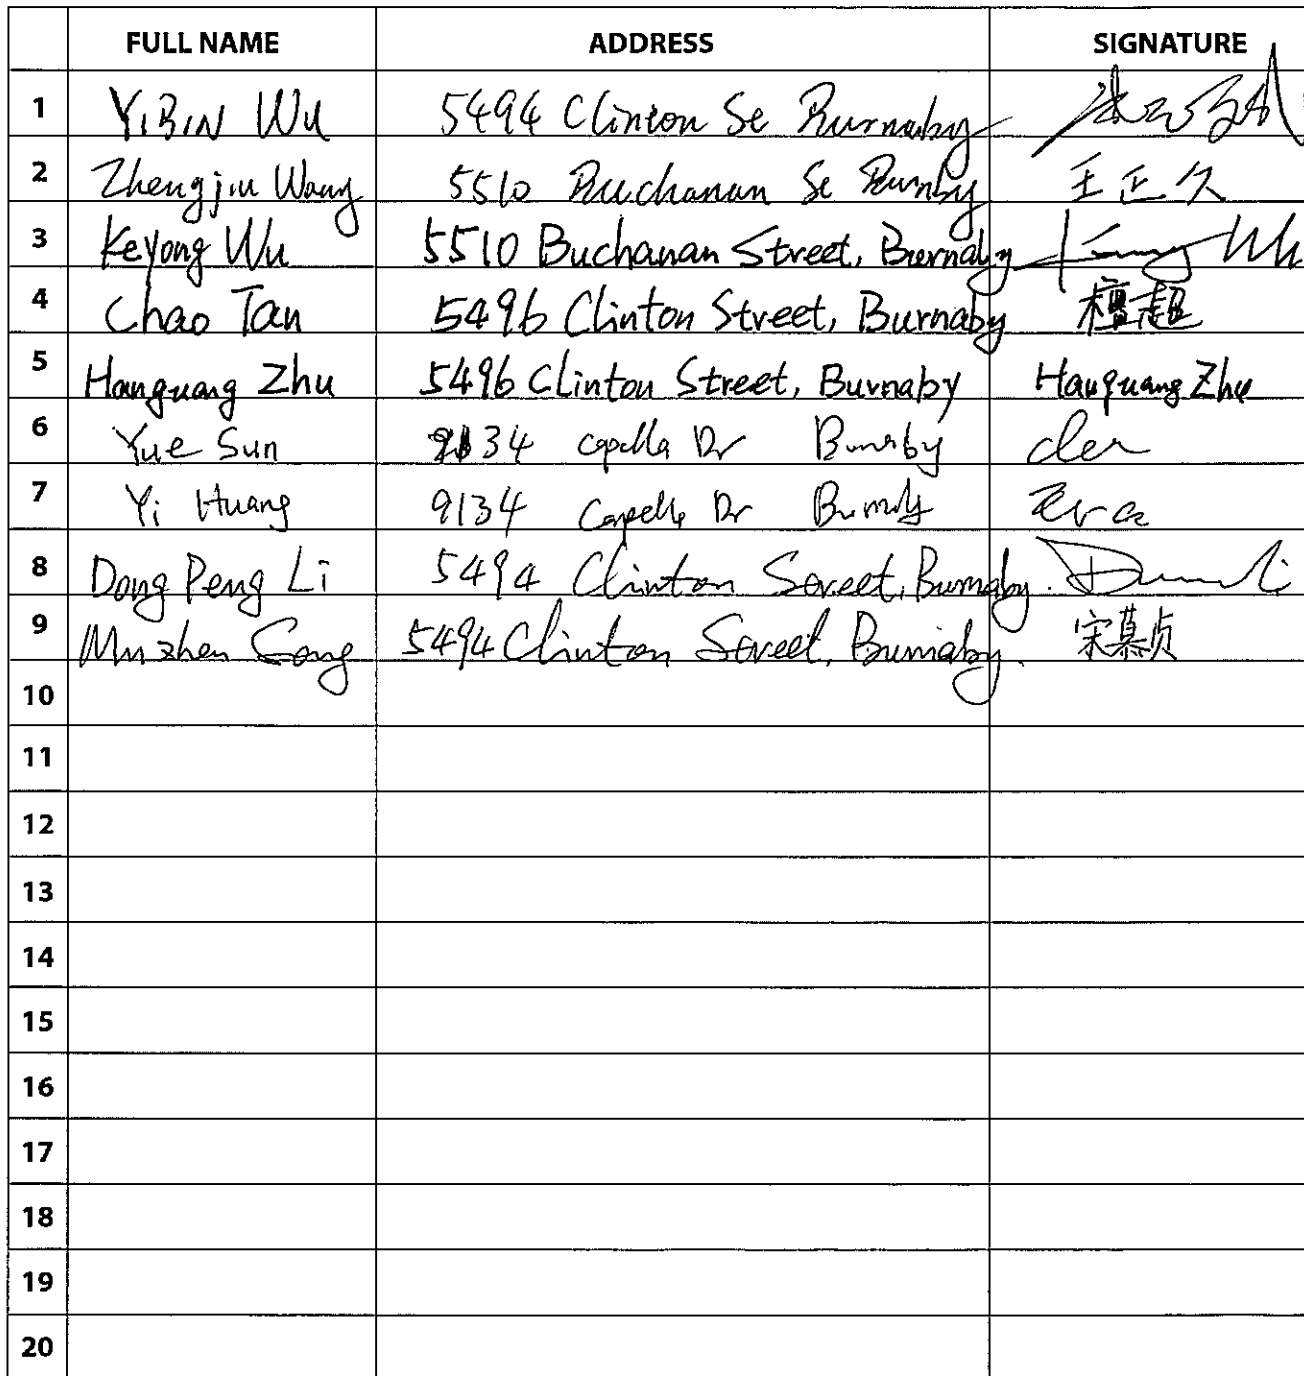 FULL NAME ADDRESS SIGNATURE
1 YiBiN Wu 5494 Clinton St Burnaby
2 Zhengjiu Wang 5510 Buchanan St Burnby 王正久
3 Keyong Wu 5510 Buchanan Street, Burnaby
4 Chao Tan 5496 Clinton Street, Burnaby 檀超
5 Hanguang Zhu 5496 Clinton Street, Burnaby Hanguang Zhu
6 Yue Sun 9134 Capella Dr Burnaby
7 Yi Huang 9134 Capella Dr Burnaby
8 Dong Peng Li 5494 Clinton Street, Burnaby.
9 Muzhen Song 5494 Clinton Street, Burnaby. 宋慕贞
10
11
12
13
14
15
16
17
18
19
20